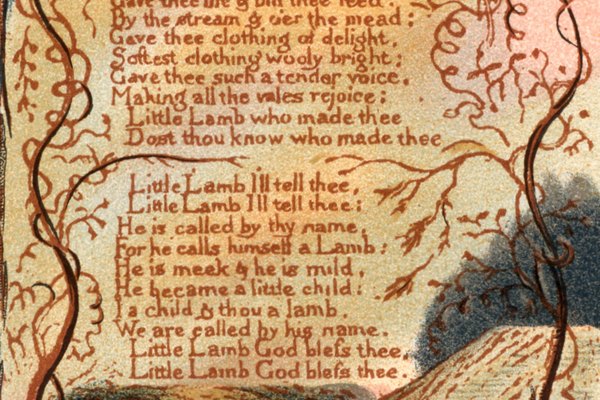 Gave thee life & bid thee feed.
By the stream & o'er the mead;
Gave thee clothing of delight,
Softest clothing wooly bright;
Gave thee such a tender voice,
Making all the vales rejoice;
Little Lamb who made thee
Dost thou know who made thee
Little Lamb I'll tell thee,
Little Lamb I'll tell thee;
He is called by thy name,
For he calls himself a Lamb:
He is meek & he is mild,
He became a little child:
I a child & thou a lamb,
We are called by his name.
Little Lamb God bless thee,
Little Lamb God bless thee.